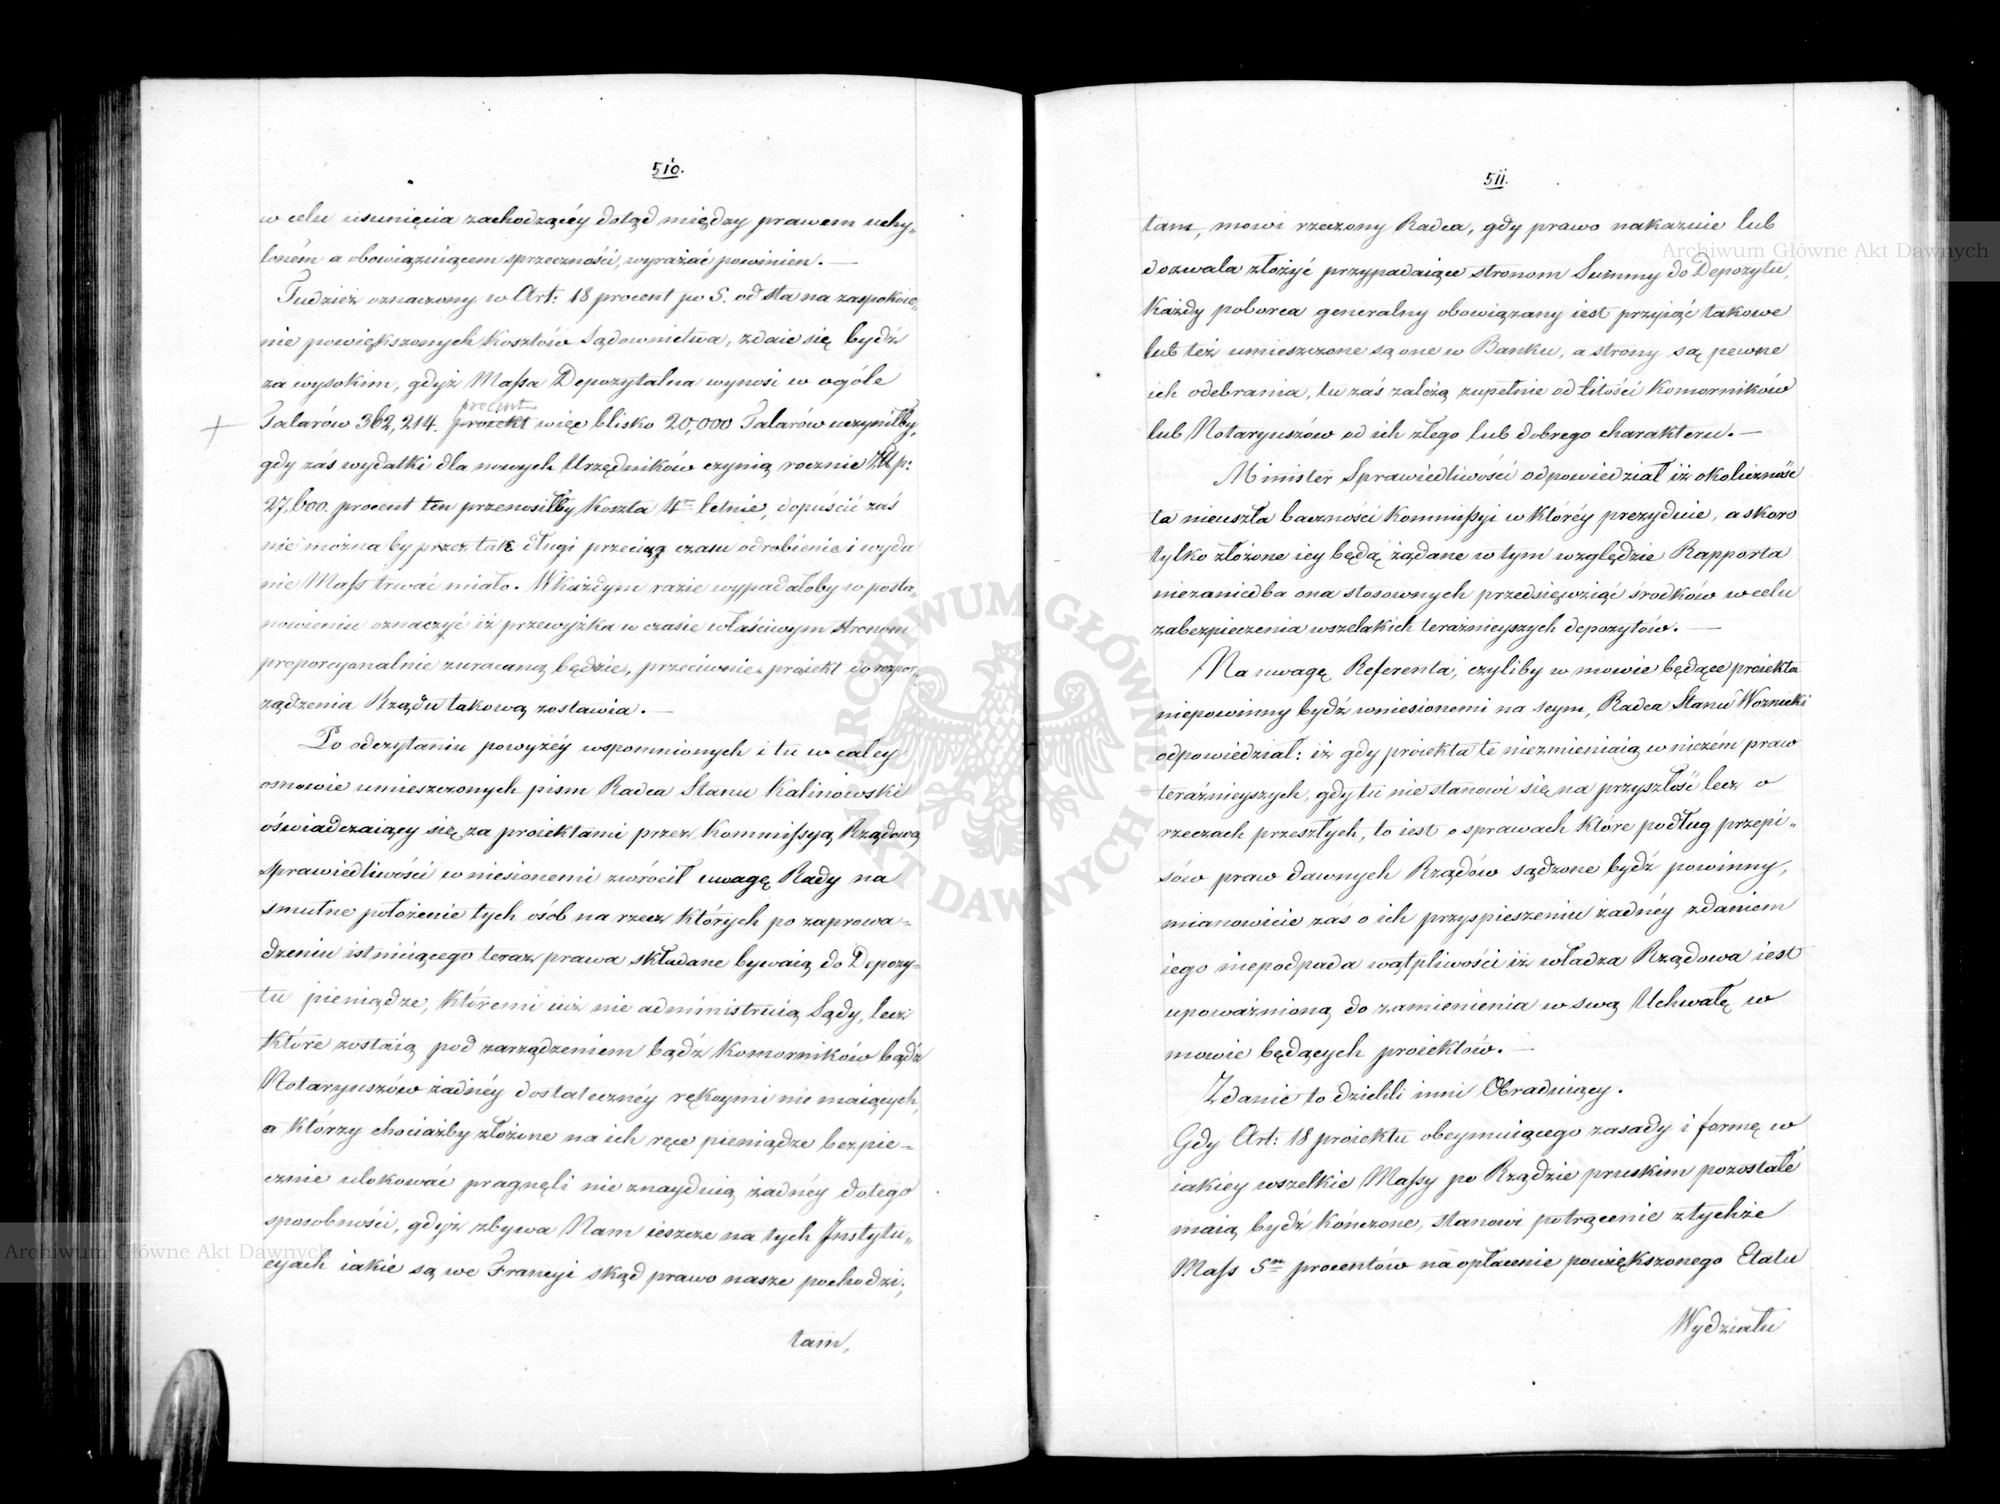 510.
w celu usunięcia zachodzącéy dotąd między prawem uchy„
loném a obowiązuiącem sprzeczności, wyrażać powinien. —
Tudzież oznaczony w Art: 18 procent po 5. od sta na zaspokoie„
nie powiększonych Kosztów Sądownictwa, zdaie się bydź
za wysokim, gdyż Massa Depozytalna wynosi w ogóle
procent
Talarów 362,214. proiekt więc blisko 20,000 Talarów uczyniłby,
gdy zaś wydatki dla nowych Urzędników czynią rocznie
27,600. procent ten przenosiłby Koszta 4ro letnie, dopuścić zaś
nie można by przez tak długi przeciąg czasu odrobienie i wyda
nie Mass trwać miało. W każdym razie wypadałoby w posta„
nowieniu oznaczyć iż przewyżka w czasie właściwym stronom
proporcyonalnie zwracaną będzie, przeciwnie proiekt do rozpor„
ządzenia Rządu takową zostawia. —
Po odczytaniu powyżéy wspomnionych i tu w całey
osnowie umieszczonych pism Radca Stanu Kalinowski
oświadczaiący się za proiektami przez Kommissyą Rządową
Sprawiedliwości wniesionemi zwrócił uwagę Rady na
smutne położenie tych osób na rzecz których po zaprowa„
dzeniu istnieiącego teraz prawa składane bywaią do Depozy„
tu pieniądze, któremi iuż nie administruią Sądy, lecz
które zostaią pod zarządzeniem bądź Komorników bądź
Notaryuszów żadnéy dostatecznéy rękoymi nie maiących,
a którzy chociażby złożone na ich ręce pieniądze bezpie„
cznie ulokować pragnęli nie znayduią żadnéy dotego
sposobności, gdyż zbywa Nam ieszcze na tych Instytu„
cyach iakie są we Francyi skąd prawo nasze pochodzi;
tam,
511.
tam, mowi rzeczony Radca, gdy prawo nakazuie lub
dozwala złożyć przypadaiące stronom Summy do Depozytu,
Każdy poborca generalny obowiązany iest przyiąć takowe
lub też umieszczone są one w Banku, a strony są pewne
ich odebrania, tu zaś zależą zupełnie od litości Komorników
lub Notaryuszów od ich złego lub dobrego charakteru. —
Minister Sprawiedliwości odpowiedział iż okoliczność
ta nieuszła baczności Kommissyi w któréy prezyduie, a skoro
tylko złożone iey będą żądane w tym względzie Rapporta
niezaniedba ona stosownych przedsięwziąć środków w celu
zabezpieczenia wszelakich teraźnieyszych depozytów. —
Na uwagę Referenta, czyliby w mowie będące proiekta
niepowinny bydź wniesionemi na seym, Radca Stanu Woznicki
odpowiedział: iż gdy proiekta te niezmieniaią w niczém praw
teraźnieyszych, gdy tu nie stanowi się na przyszłość lecz o
rzeczach przeszłych, to iest o sprawach które podług przepi„
sów praw dawnych Rządów sądzone bydź powinny,
mianowicie zaś o ich przyspieszeniu żadnéy zdaniem
iego niepodpada wątpliwości iż władza Rządowa iest
upoważnioną do zamienienia w swą Uchwałę w
mowie będących proiektów. —
Zdanie to dzielili inni Obraduiący.
Gdy Art: 18 proiektu obeymuiącego zasady i formę w
iakiey wszelkie Massy po Rządzie pruskim pozostałe
maią bydź kończone, stanowi potrącenie z tychże
Mass 5ciu procentów na opłacenie powiększonego Etatu
Wydziału
Archiwum Główne Akt Dawnych
Archiwum Główne Akt Dawnych
ARCHIWUM GŁÓWNE AKT DAWNYCH